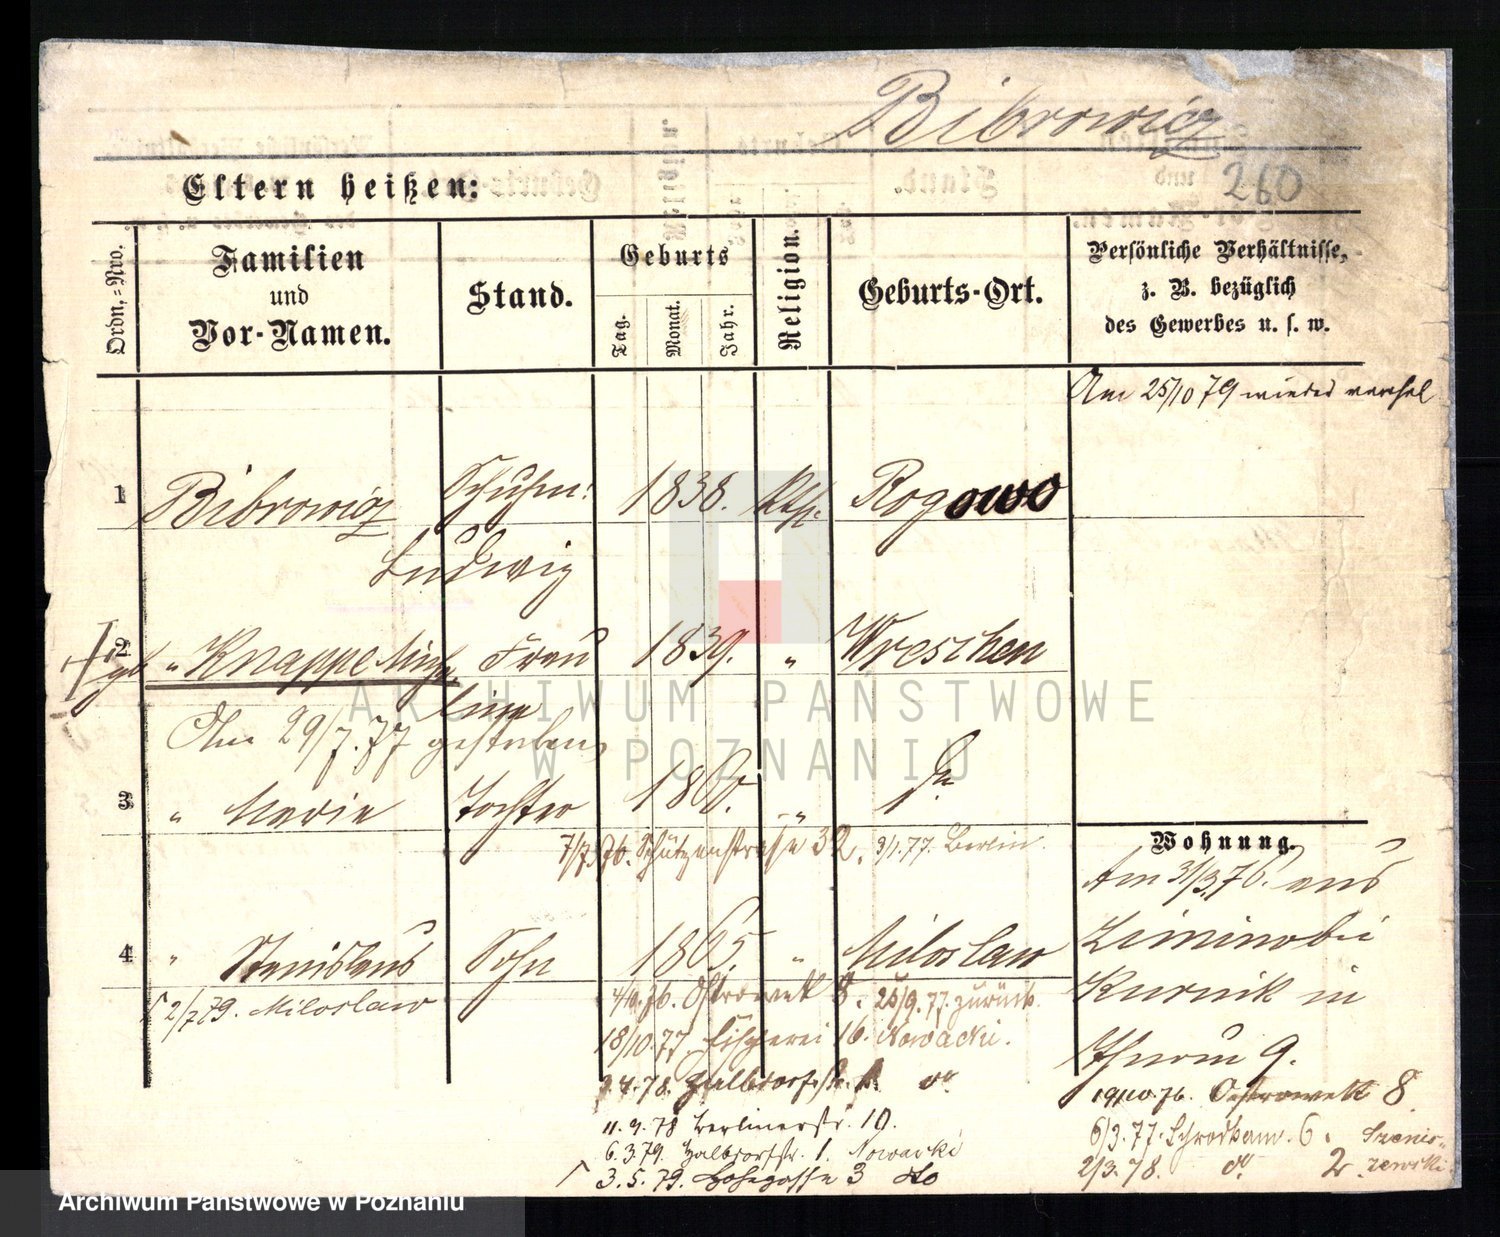 Bibrowicz
260
Eltern heißen:
Ordn.-Nro.
Familien
und
Vor-Namen.
Stand.
Geburts
Tag.
Monat.
Jahr.
Religion.
Geburts-Ort.
Persönliche Verhältnisse,
z. B. bezüglich
des Gewerbes u. s. w.
Am 25/10 79 wieder
1 Bibrowicz Schuhm: 1838. Kth. Rogowo
Ludwig
2 " Knappe Frau 1839. " Wreschen
Am 29/7.77 gestorben
3 " Maria Tochter 1860. "
7/7.76. Schützenstrasse 32. 3/1.77. Berlin.
Wohnung.
Am 31/3.76. aus
4 " Stanislaus Sohn 1865. " Miloslaw
Kurnik in
2/7 79. Miloslaw
Ostrowek 8. 25/9.77. zurück.
18/10.77. Fischerei 16. Nowacki.
Thurm 9.
7.4.78. Halbdorfstr. do
19/10.76. Ostrowek 8
11.9.78 Berlinerstr. 10.
6/3.77. Schrodkam. 6. Szenis-
6.3.79. Halbdorfstr. 1. Nowacki
2/3.78. do 2 zewski
3.5.79. 3 do
ARCHIWUM PAŃSTWOWE
W POZNANIU
Archiwum Państwowe w Poznaniu